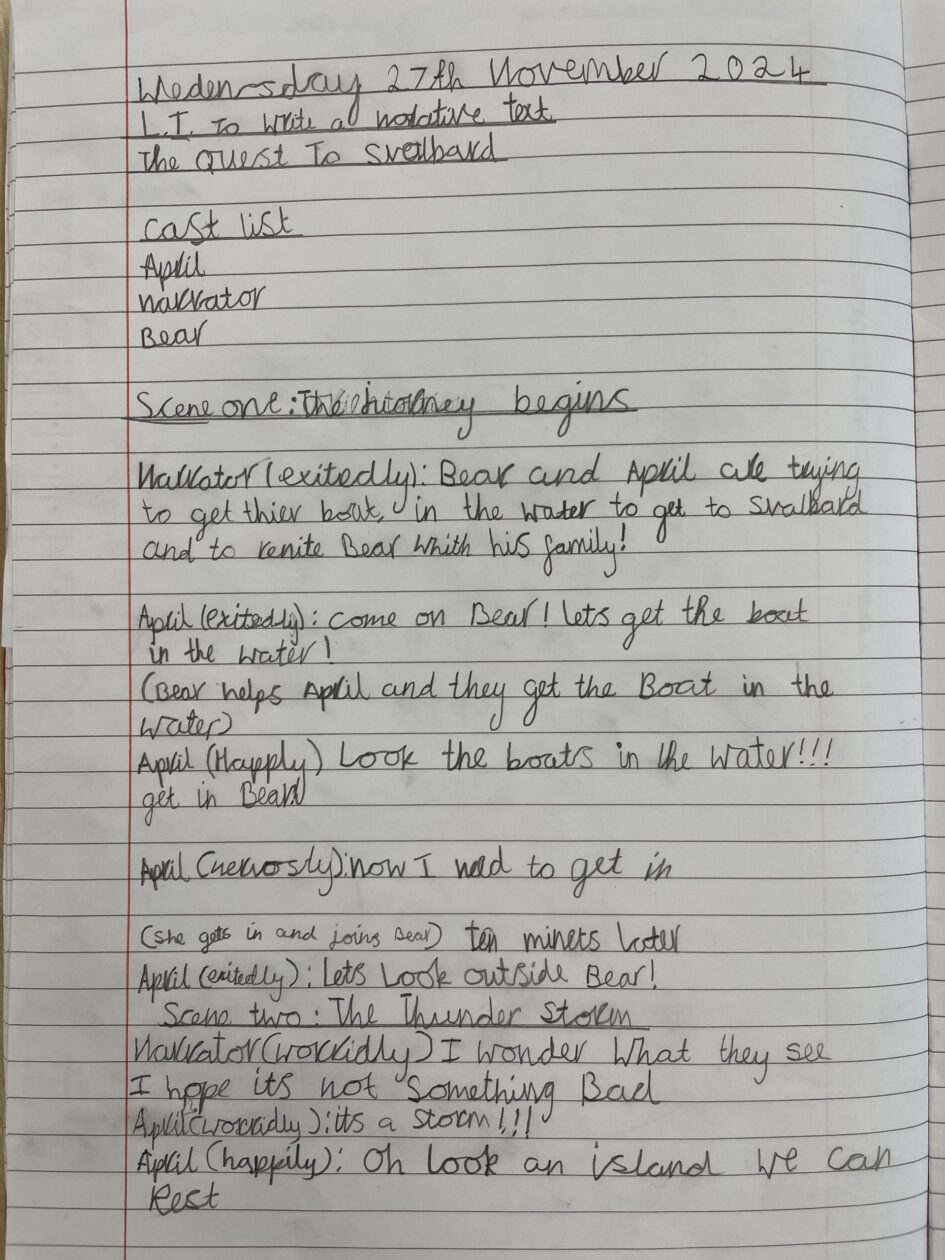 Wedensday 27th November 2024
L.I. To write a narative text
The Quest To Svalbard
Cast list
April
narrator
Bear
Scene one: The journey begins
Narrator (exitedly): Bear and April are trying
to get thier boat, in the water to get to Svalbard
and to renite Bear whith his family!
April (exitedly): come on Bear! lets get the boat
in the water!
(Bear helps April and they get the Boat in the
water)
April (Happly) Look the boats in the water!!!
get in Bear!
April (nervosly): now I need to get in
(she gets in and joins Bear) ten minets later
April (exitedly): Lets Look outside Bear!
Scene two: The Thunder Storm
Narrator (worridly) I wonder what they see
I hope its not something Bad
April (worridly): its a storm!!!
April (happily): Oh look an island we can
Rest